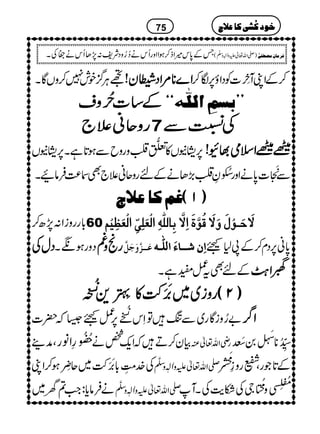 خود کُشی کا علاج
75
فرمانِ مصطفٰے: (صلی اللہ تعالیٰ علیہ والہ وسلم) جس کے پاس میرا ذکر ہوا اور اُس نے دُرُود شریف نہ پڑھا اُس نے جفا کی۔
کر کے اپنی آخرت کو داؤ پر لگا کر اے نامراد شیطان! تجھے ہرگز خوش نہیں کروں گا۔
’’بسمِ اللّٰہ‘‘ کے سات حُرُوف
کی نسبت سے 7 روحانی علاج
میٹھے میٹھے اسلامی بھائیو! پریشانیوں کا تعلُّق قلب و روح سے ہوتا ہے۔ پریشانیوں
سے نَجات پانے اور سُکونِ قلب بڑھانے کے لئے روحانی علاج بھی سماعت فرمائیے۔
(۱) غم کا علاج
لَاحَوْلَ وَلَا قُوَّةَ اِلَّا بِاللّٰہِ الْعَلِیِّ الْعَظِیْمِ 60 بار روزانہ پڑھ کر
پانی پر دم کر کے پی لیا کیجئے اِن شاءَ اللہ عَزَّوَجَلَّ رنج و غم دور ہونگے۔ دل کی
گھبراہٹ کے لئے بھی یہ عمل مفید ہے۔
(۲) روزی میں بَرَکت کا بہترین نُسخہ
اگر بے رُوزگاری سے تنگ ہیں تو اِس نُسخے پر عمل کیجئے جیسا کہ حضرتِ
سیِّدُنا سَہل بن سَعد رضی اللہ تعالیٰ عنہ بیان کرتے ہیں کہ ایک شخص نے حُضُورِ انور، مدینے
کے تاجور، شفیعِ روزِ مَحشر صلی اللہ تعالیٰ علیہ والہ وسلم کی خدمتِ بابَرَکت میں حاضِر ہو کر اپنی
مُفلِسی و مُحتاجی کی شکایت کی۔ آپ صلی اللہ تعالیٰ علیہ والہ وسلم نے فرمایا: جب تم گھر میں